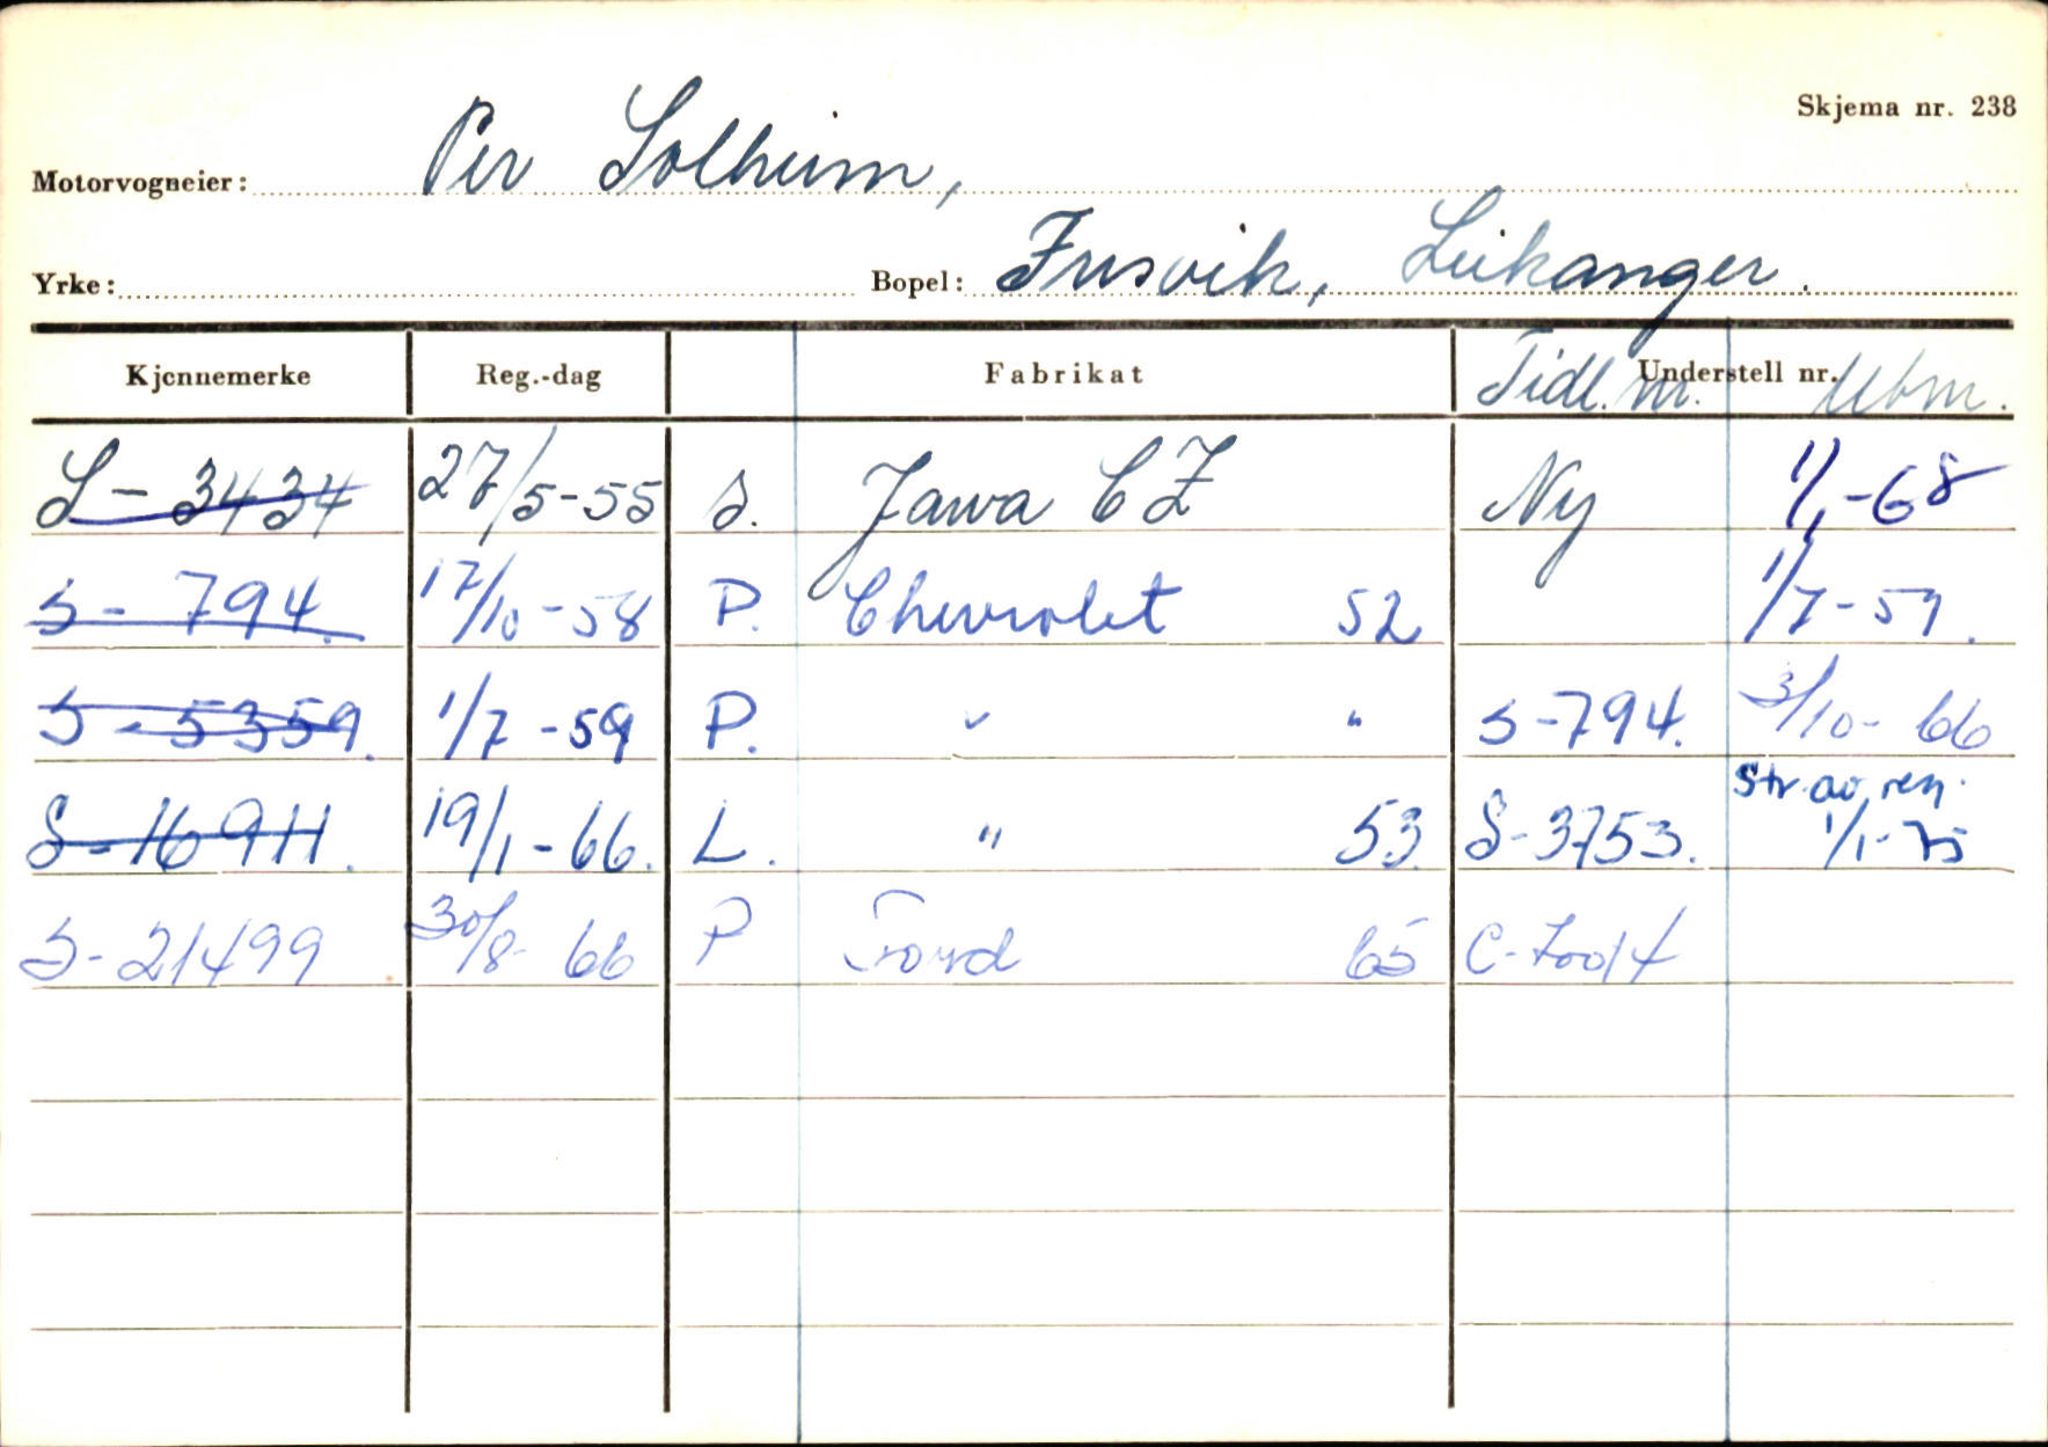 Skjema nr. 238
Motorvogneier: Per Solheim,
Yrke: Bopel: Frisvik, Leikanger.
Kjennemerke Reg.-dag Fabrikat Tidl. nr. Understell nr. Ubm.
S - 3434 27/5-55 S. Jawa CZ Ny 1/1-68
S - 794. 17/10-58 P. Chevrolet 52 1/7-59.
S - 5359. 1/7-59 P. " " S-794. 3/10-66
S-16911. 19/1-66. L. " 53. S-3753. Str. av reg. 1/1-75
S-21499 30/8-66 P Ford 65 C-70014